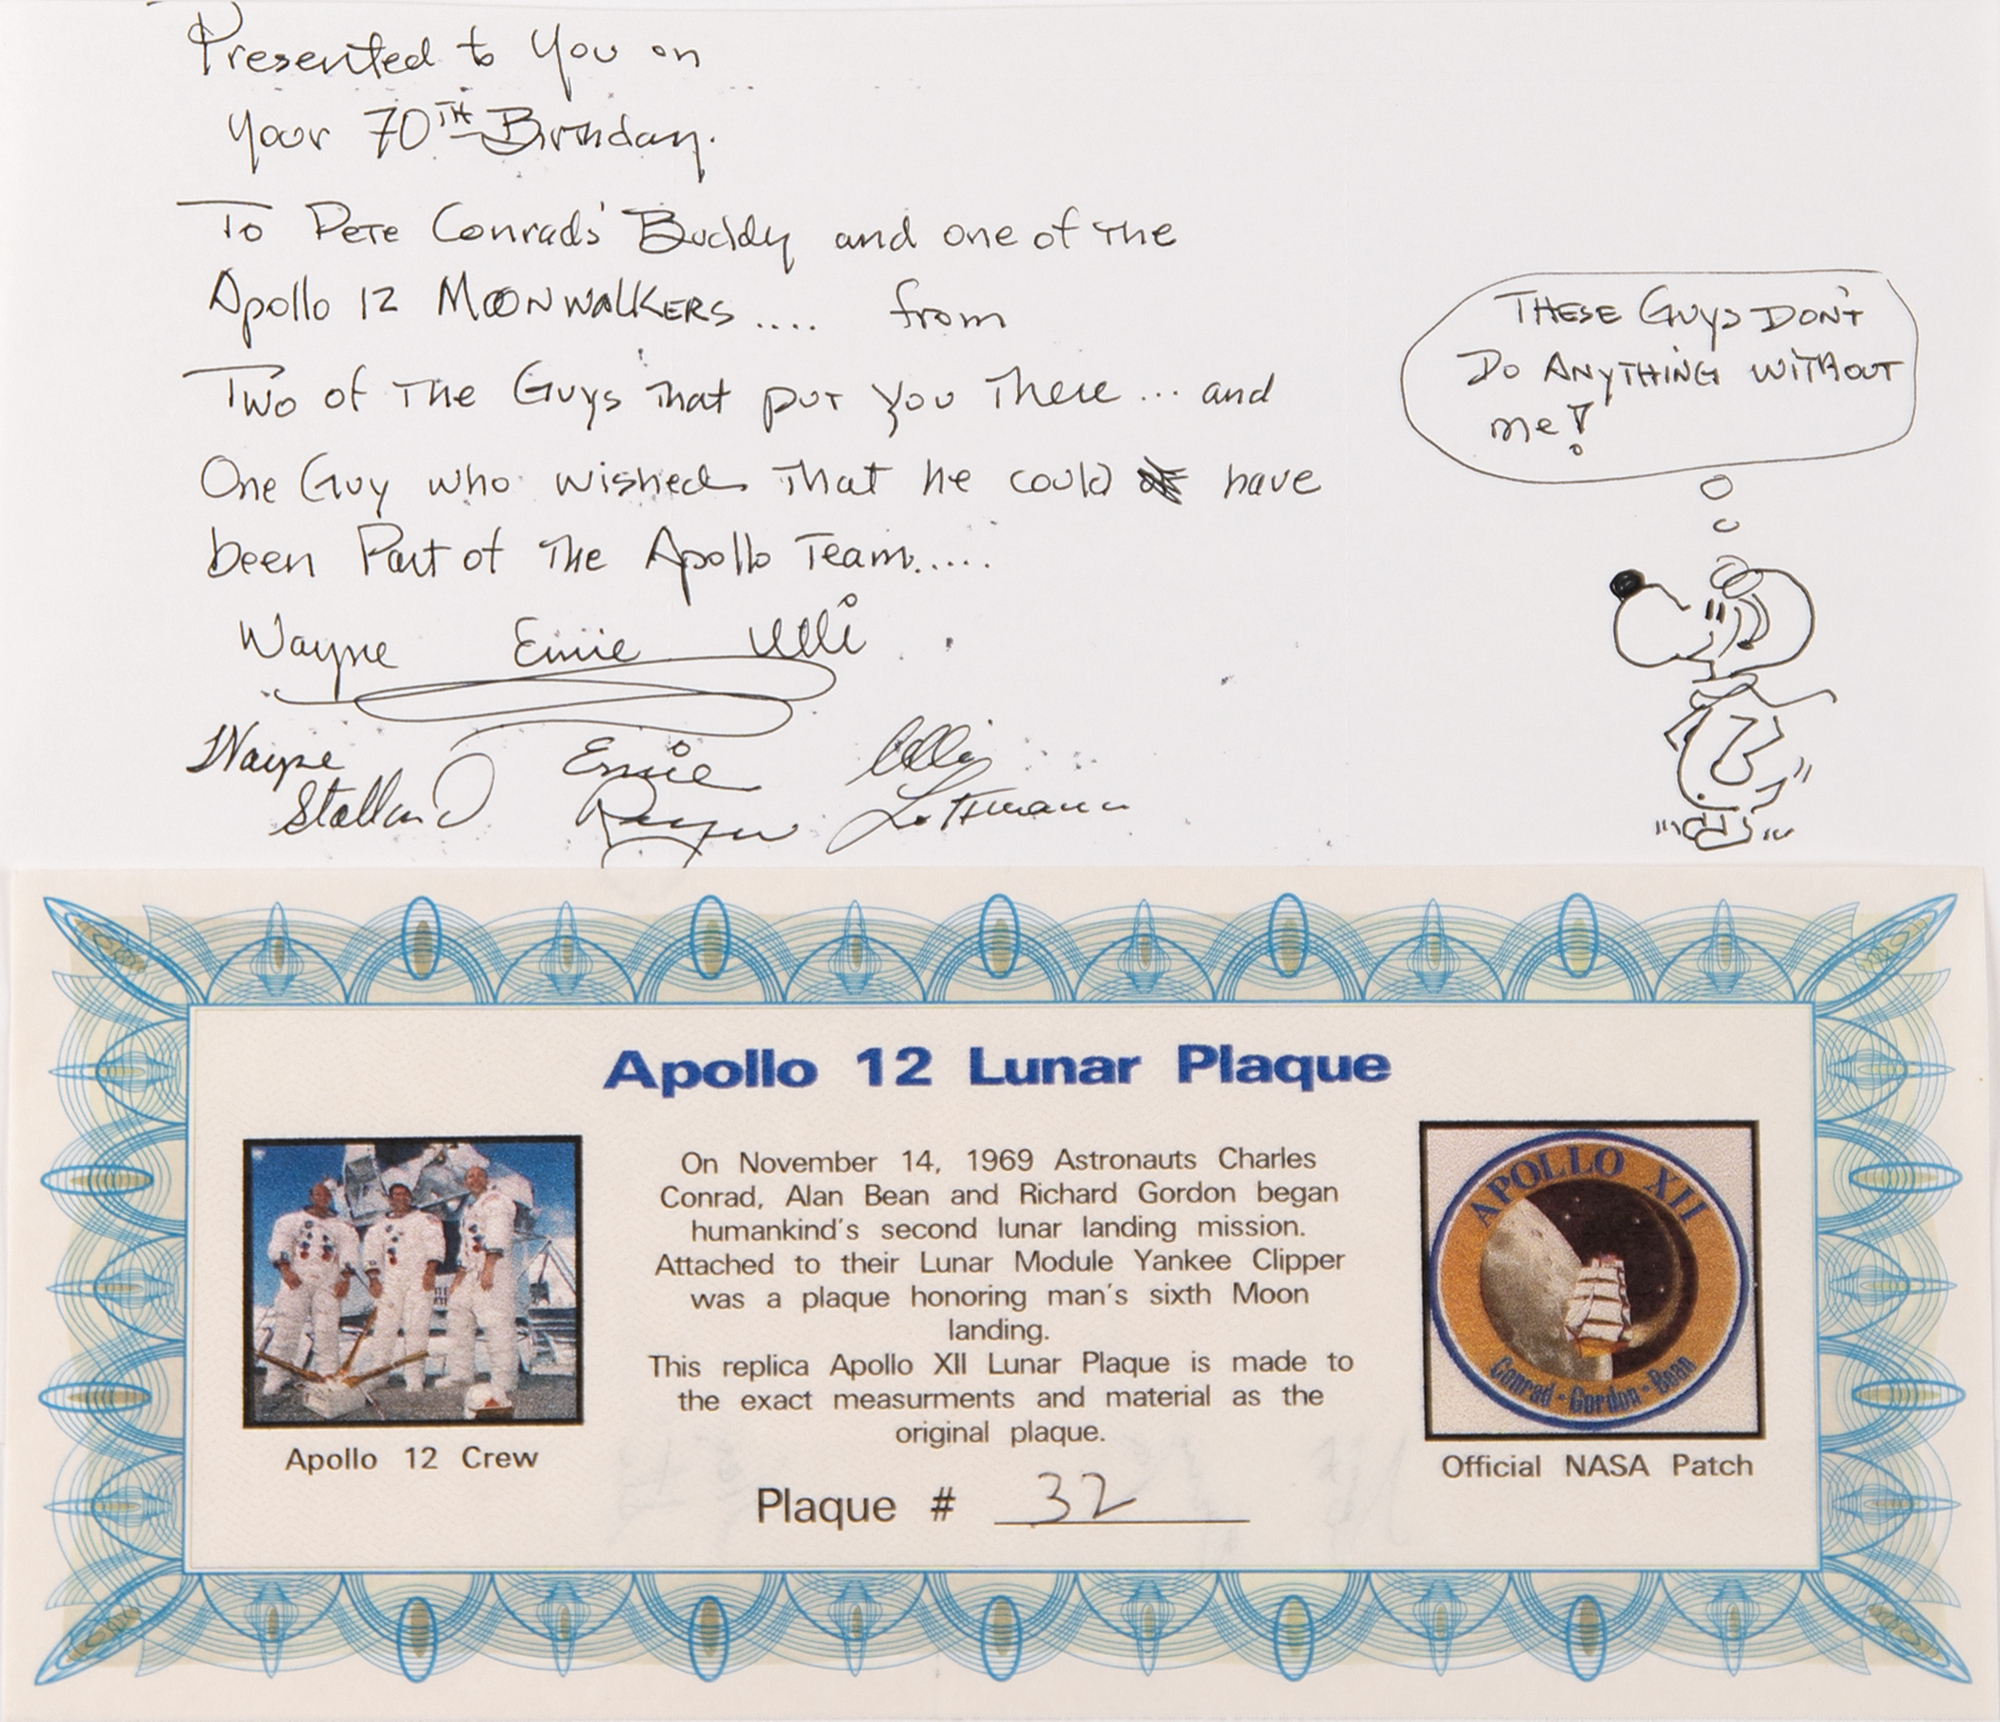 Presented to You on
your 70TH Birthday.
To Pete Conrads' Buddy and one of the
Apollo 12 MOONWALKERS.... from
Two of the Guys that put you there... and
One Guy who wished that he could have
been Part of the Apollo Team.....
Wayne Ernie Ulli
Wayne Ernie Ulli
Stallard Reyer Lotzmann
THESE GUYS DON'T
DO ANYTHING WITHOUT
me!
Apollo 12 Lunar Plaque
On November 14, 1969 Astronauts Charles
Conrad, Alan Bean and Richard Gordon began
humankind's second lunar landing mission.
Attached to their Lunar Module Yankee Clipper
was a plaque honoring man's sixth Moon
landing.
This replica Apollo XII Lunar Plaque is made to
the exact measurments and material as the
original plaque.
Plaque # 32
Apollo 12 Crew
APOLLO XII
Conrad • Gordon • Bean
Official NASA Patch